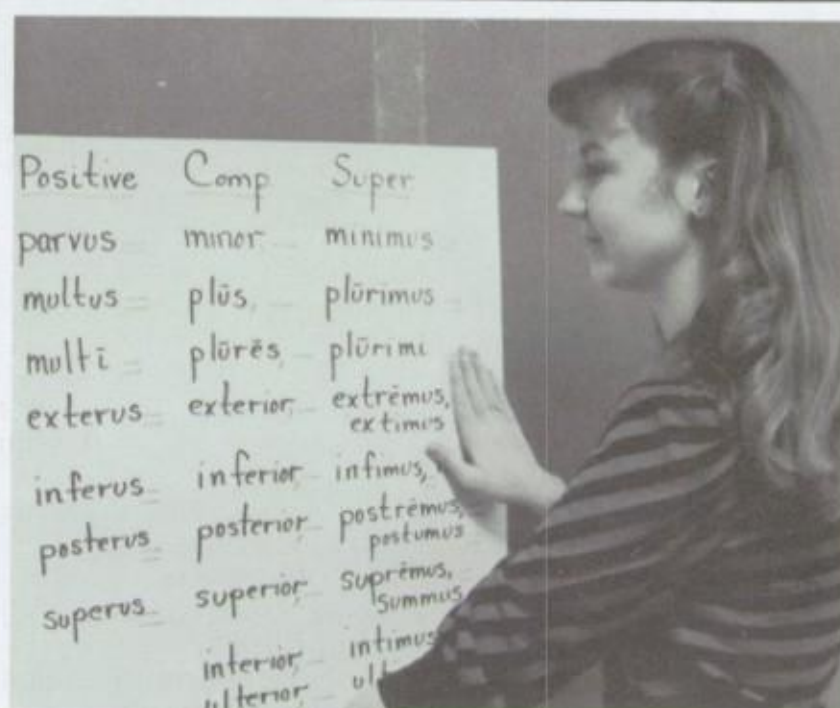 Positive Comp Super
parvus minor minimus
multus plūs, plūrimus
multī plūrēs, plūrimi
exterus exterior, extrēmus,
extimus
inferus inferior infimus,
posterus posterior postrēmus,
postumus
superus superior, suprēmus,
summus
interior, intimus
ulterior,